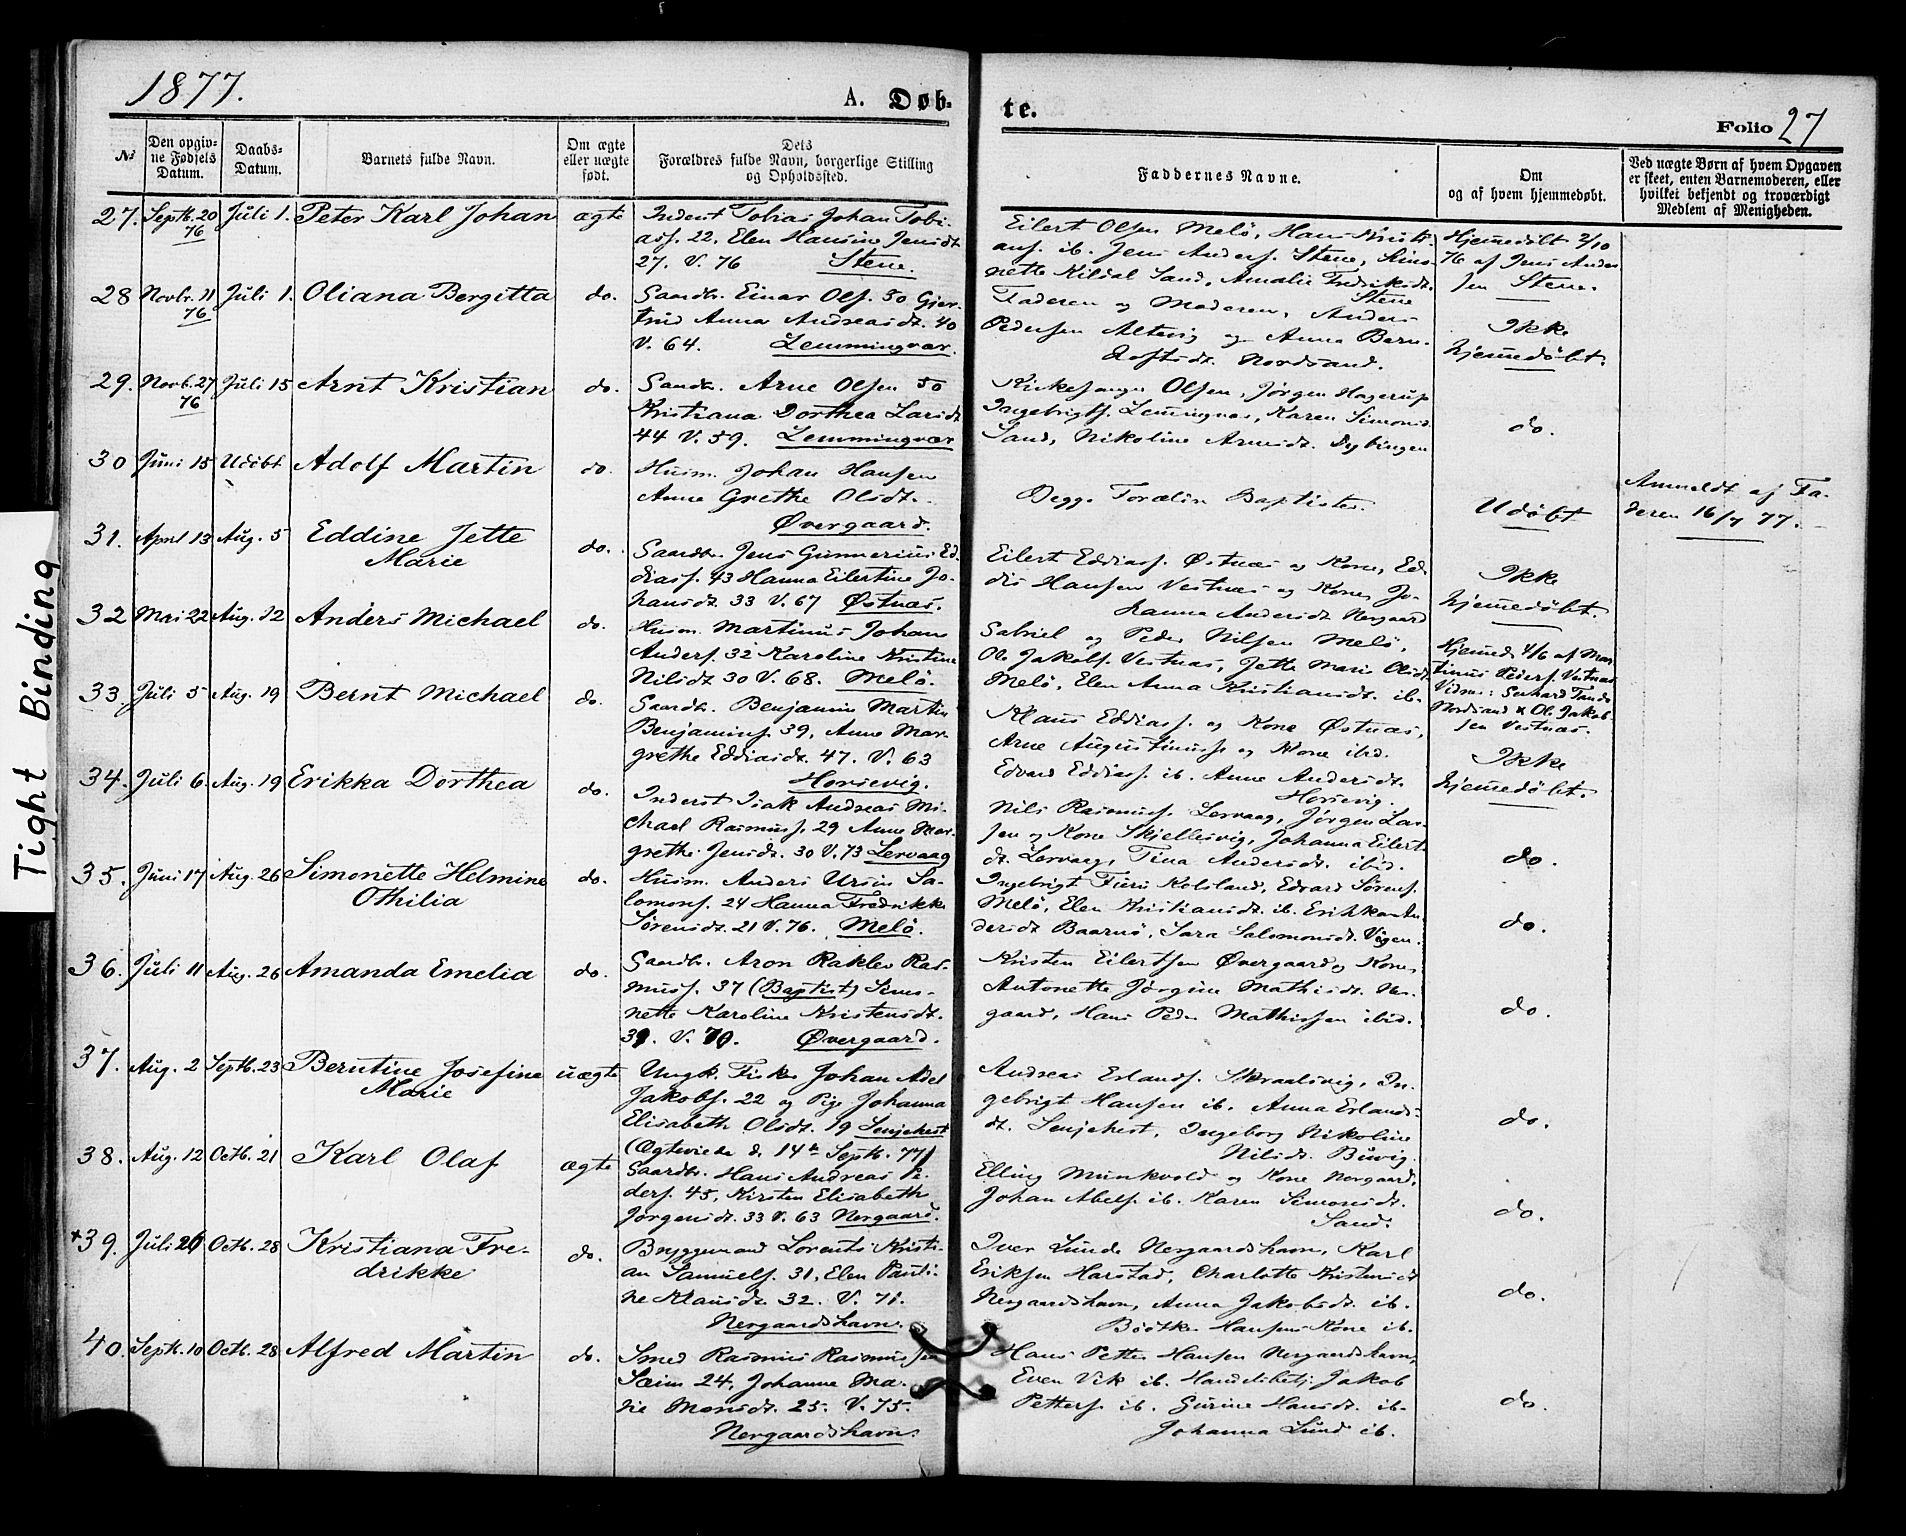 1877.
A. Døb-
te.
Folio 27
Tight Binding
№
Den opgiv-
ne Fødsels
Datum.
Daabs-
Datum.
Barnets fulde Navn.
Om ægte
eller uægte
født.
Dets
Forældres fulde Navn, borgerlige Stilling
og Opholdssted.
Faddernes Navne.
Om
og af hvem hjemmedøbt.
Ved uægte Børn af hvem Opgaven
er skeet, enten Barnemoderen, eller
hvilket bekjendt og troværdigt
Medlem af Menigheden.
27. Septb. 20 76 Juli 1. Peter Karl Johan ægte
Inderst Tobias Johan Tobi-
asf. 22, Elen Hansine Jensdt.
27. V. 76 Stene.
Eilert Olsen Melö, Hans Krist-
ansf. ib. Jens Andersf. Stene, Simo-
nette Kildal Sand, Amalie Fredriksdt.
Stene
Hjemmedöbt 2/10
76 af Jens Ander
sen Stene.
28 Novbr. 11 76 Juli 1. Oliana Bergitta do.
Gaardbr. Einar Ols. 50 Gjer-
trud Anna Andreasdt. 40
V. 64. Lemmingvær.
Faderen og Moderen, Anders
Pedersen Altevig og Anna Bern-
hoftsdt. Nordsand.
Ikke
hjemmedöbt.
29. Novb. 27 76 Juli 15 Arnt Kristian do.
Gaardbr. Arne Olsen 50
Kristiana Dorthea Larsdt
44 V. 59. Lemmingvær
Kirkesanger Olsen, Jørgen Hagerup
Ingebrigtsf. Lemingvær, Karen Simonsd.
Sand, Nikoline Arnesdt. Dybingen
do.
30 Juni 15 Udöbt Adolf Martin do.
Husm. Johan Hansen
Anne Grethe Olsdt.
Øvergaard.
Begge Forældre Baptister.
Udöbt
Anmeldt af Fa-
deren 16/7 77.
31. April 13 Aug. 5 Eddine Jette
Marie do.
Gaardbr. Jens Gunnerius Ed-
diasf. 43 Hanna Eilertine Jo-
hansdt. 33 V. 67 Østnæs.
Eilert Eddiasf. Østnæs og Kone, Ed-
dis Hansen Vestnæs og Kone, Jo-
hanna Andersdt Nergaard
Ikke
hjemmedöbt.
32 Mai 22 Aug. 12 Anders Michael do.
Husm. Martinus Johan
Andersf. 32 Karoline Kristine
Nilsdt 30 V. 68. Melö.
Gabriel og Peder Nilsen Melö,
Ol. Jakobsf. Vestnæs, Jette Marie Olsdt
Melö, Elen Anna Kristiansdt. ib.
Hjemmed. 4/6 af Mar-
tinus Pedersf. Vestnæs
Vidn: Gerhard Tande
Nordsand & Ol. Jakob-
sen Vestnæs.
33. Juli 5 Aug. 19 Bernt Michael do.
Gaardbr. Benjamin Martin
Benjaminsf. 39, Anne Mar-
grethe Eddiasdt. 47. V. 63
Horsevig.
Klaus Eddiasf. og Kone Østnæs,
Arne Augustinussf. og Kone ibid.
Edvard Eddiasf. ib. Anne Andersdt.
Horsevig.
Ikke
hjemmedöbt.
34. Juli 6. Aug. 19 Erikka Dorthea do.
Inderst Isak Andreas Mi-
chael Rasmusf. 29 Anne Mar-
grethe Jensdt. 30 V. 73 Lervaag
Nils Rasmusf. Lervaag, Jörgen Lar-
sen og Kone Skjellesvig, Johanna Eilert-
dt. Lervaag, Tina Andersdt. ibid.
do.
35. Juni 17 Aug. 26 Simonette Helmine
Othilia do.
Husm. Anders Ursin Sa-
lomonsf. 24 Hanna Fredrikke
Sörensdt. 21 V. 76. Melö.
Ingebrigt Kolsland, Edvard Sörensf.
Melö, Elen Kristiansdt. ib. Erikka An-
dersdt Baarnö, Sara Salomonsdt. Vigen.
do.
36. Juli 11 Aug. 26 Amanda Emelia do.
Gaardbr. Aron Raklev Ras-
musf. 37 (Baptist) Simo-
nette Karoline Kristensdt.
39. V. 70. Øvergaard.
Kristen Eilertsen Øvergaard og Kone,
Antonette Jørgine Mathisdt. Ner-
gaard, Hans Peder Mathissen ibid.
do.
37. Aug. 2 Septb. 23 Berntine Josefine
Marie uægte
Ungk. Fisker Johan Abel
Jakobsf. 22 og Pige Johanna
Elisabeth Olsdt. 19 Senjehest
(Ægteviede d. 14de Septb. 77)
Andreas Erlandsf. Skraalsvig, In-
gebrigt Hansen ib. Anna Erlands-
dt. Senjehest, Ingeborg Nikoline
Nilsdt. Buvig.
do.
38. Aug. 12 Octb. 21 Karl Olaf ægte
Gaardbr. Hans Andreas Pe-
dersf. 45, Kirsten Elisabeth
Jørgensdt. 33 V. 63 Nergaard.
Elling Munkvold og Kone Nergaard,
Johan Abelsf. ib. Karen Simonsdt.
Sand.
do.
+39. Juli 26 Octb. 28 Kristiana Fre-
drikke do.
Bryggemand Lorents Kristi-
an Samuelsf. 31, Elen Pauli-
ne Klausdt. 32. V. 71.
Nergaardshavn.
Iver Lunde Nergaardshavn, Karl
Eriksen Harstad, Charlotte Kristensdt
Nergaardshavn, Anna Jakobsdt. ib.
Bödker Hansens Kone ib.
do.
40. Septb. 10 Octb. 28 Alfred Martin do.
Smed Rasmus Rasmussen
Sæim 24, Johanne Ma-
rie Monsdt. 25. V. 75.
Nergaardshavn.
Hans Petter Hansen Nergaardshavn,
Even Vik ib. Handelsbetj. Jakob
Pettersf. ib. Gurine Hansdt. ib.
Johanna Lund ib.
do.